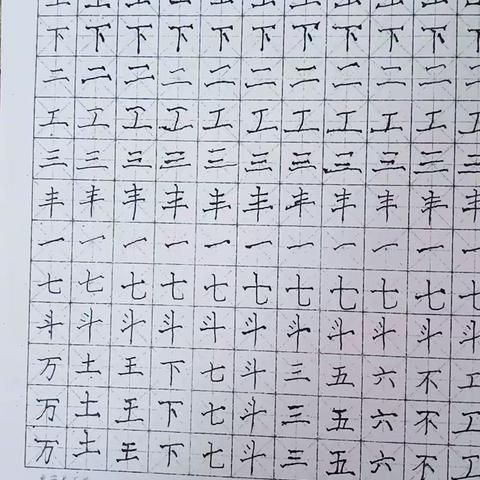 下下下下下下下下下下下
二二二二二二二二二二二
工工工工工工工工工工工
三三三三三三三三三三三
丰丰丰丰丰丰丰丰丰丰丰
一一一一一一一一一一一
七七七七七七七七七七七
斗斗斗斗斗斗斗斗斗斗斗
万土王下七斗三五六不工
万土王下七斗三五六不工
万土王下七斗三五六不工